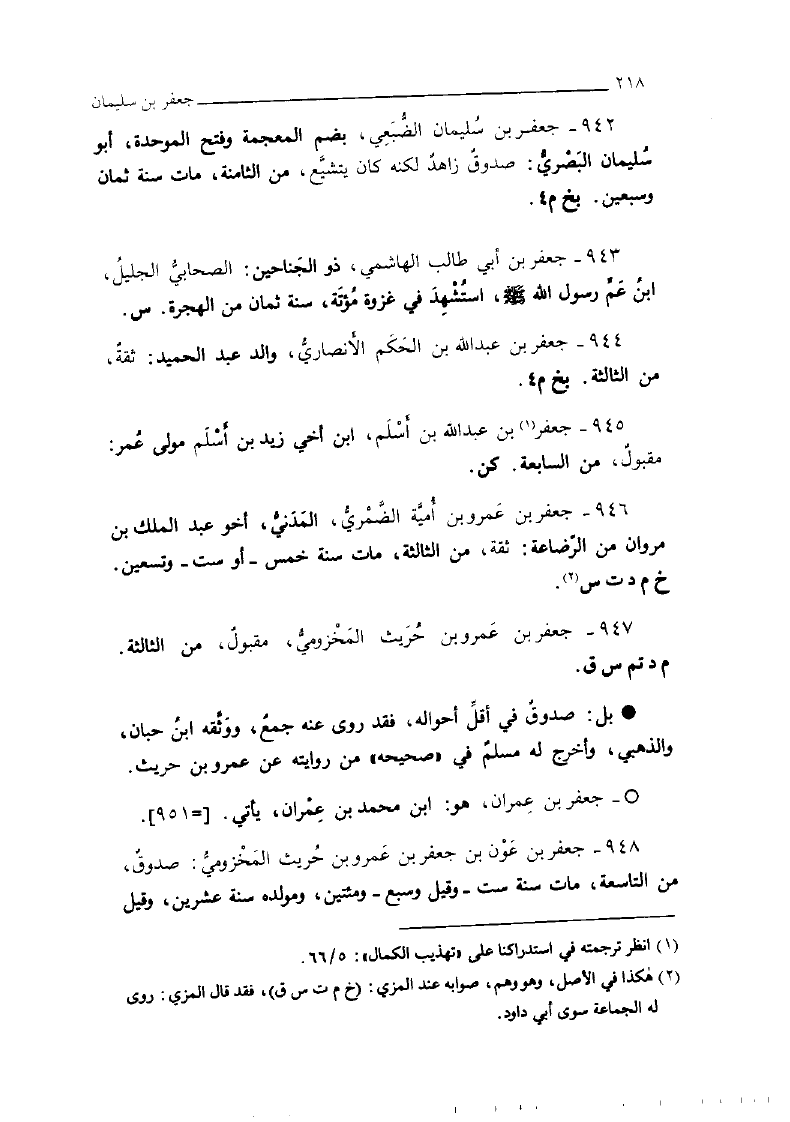 ٢١٨
جعفر بن سليمان
٩٤٢ ـ جعفر بن سُليمان الضُّبَعِي، بضم المعجمة وفتح الموحدة، أبو
سُليمان البَصْريُّ: صدوقٌ زاهدٌ لكنه كان يتشيَّع، من الثامنة، مات سنة ثمان
وسبعين. بخ م٤.
٩٤٣ ـ جعفر بن أبي طالب الهاشمي، ذو الجَناحين: الصحابيُّ الجليلُ،
ابنُ عَمِّ رسول الله ﷺ، استُشْهِدَ في غزوة مُؤتَة، سنة ثمان من الهجرة. س.
٩٤٤ ـ جعفر بن عبدالله بن الحَكَم الأَنصاريُّ، والد عبد الحميد: ثقةٌ،
من الثالثة. بخ م٤.
٩٤٥ ـ جعفر(١) بن عبدالله بن أَسْلَم، ابن أخي زيد بن أَسْلَم مولى عُمر:
مقبولٌ، من السابعة. كن.
٩٤٦ ـ جعفر بن عَمرو بن أُميَّة الضَّمْريُّ، المَدَنيُّ، أخو عبد الملك بن
مروان من الرّضاعة: ثقة، من الثالثة، مات سنة خمس ـ أو ست ـ وتسعين.
خ م د ت س(٢).
٩٤٧ ـ جعفر بن عَمرو بن حُرَيث المَخْزوميُّ، مقبولٌ، من الثالثة.
م د تم س ق.
● بل: صدوقٌ في أقلِّ أحواله، فقد روى عنه جمعٌ، ووَثَّقه ابنُ حبان،
والذهبي، وأخرج له مسلمٌ في «صحيحه» من روايته عن عمرو بن حريث.
○ ـ جعفر بن عِمران، هو: ابن محمد بن عِمْران، يأتي. [=٩٥١].
٩٤٨ ـ جعفر بن عَوْن بن جعفر بن عَمرو بن حُريث المَخْزوميُّ: صدوقٌ،
من التاسعة، مات سنة ست ـ وقيل وسبع ـ ومئتين، ومولده سنة عشرين، وقيل
(١) انظر ترجمته في استدراكنا على «تهذيب الكمال»: ٦٦/٥.
(٢) هٰكذا في الأصل، وهو وهم، صوابه عند المزي: (خ م ت س ق)، فقد قال المزي: روى
له الجماعة سوى أبي داود.